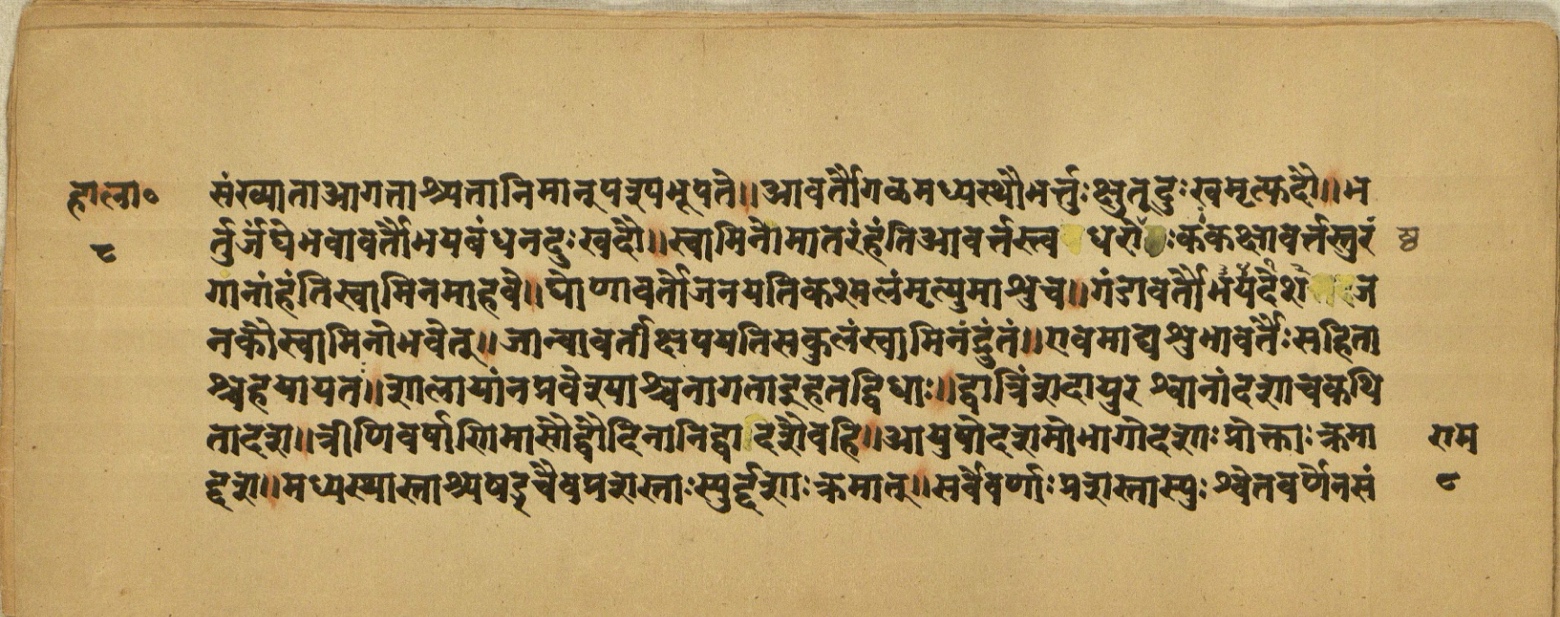 हाला॰ संख्याताआगताश्च्यतानिमानूपनृपभूपते॥आवर्तौगलमध्यस्थौभर्त्तुःक्षुतृदुःखमृत्फदौ॥भ
८ र्तुर्जंघेभवावर्तौभयबंधनदुःखदौ॥स्वामिनोमातरंहंतिआवर्त्तस्त्व धरो ःकंकक्षावर्त्तस्तुरं
गानांहंतिस्वामिनमाहवे॥घोणावर्तोजनयतिकश्मलंमृत्युमाश्रुच॥गंडावर्तौ ज
नकौस्वामिनोभवेत्॥जान्वावर्तीक्षपयतिसकुलंस्वामिनंद्रुतं॥एवमाद्यश्रुभावर्तैःसहिता
श्चहयायत॥शालायांनप्रवेश्याश्चनागताद्रूहतद्विधाः॥द्वात्रिंशदायुरश्वानांदशाचकथि
तादश॥त्रीणिवर्षाणिमासौद्वौदिनानिद्वादशैवहि॥आयुषोदशमोभागोदशाःप्रोक्ताःक्रमा राम
द्दश॥मध्यस्थास्ताश्च्यषड्चैवप्रशस्ताःस्युर्द्दशाःक्रमात्॥सर्वेवर्णाःप्रशस्तास्युःश्वेतवर्णेनसं ८